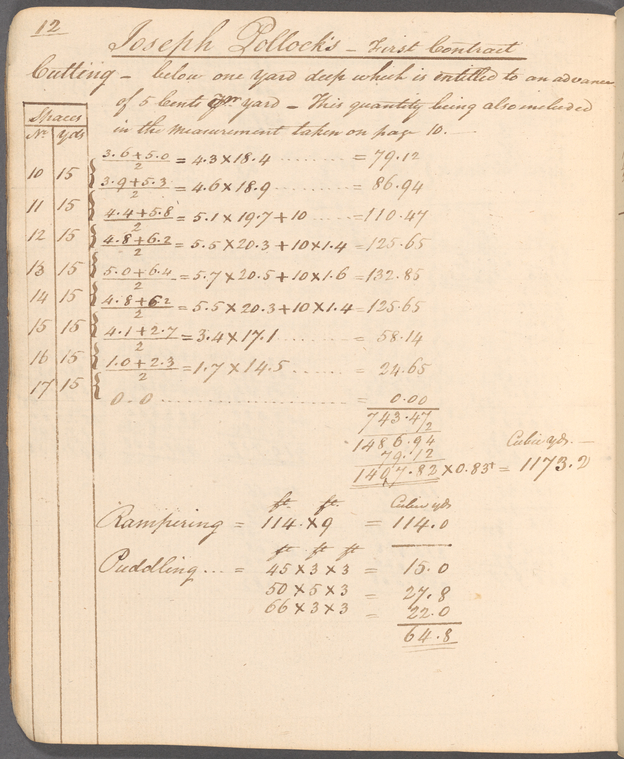 12
Joseph Pollock's - First Contract
Cutting - below one yard deep which is entitled to an advance
of 5 Cents pr yard - This quantity being also included
in the measurement taken on page 10.
Spaces
No. yds
3.6+5.0/2 = 4.3×18.4 .......... = 79.12
10 15
3.9+5.3/2 = 4.6×18.9 .......... = 86.94
11 15
4.4+5.8/2 = 5.1×19.7+10 ...... =110.47
12 15
4.8+6.2/2 = 5.5×20.3+10×1.4 =125.65
13 15
5.0+6.4/2 = 5.7×20.5+10×1.6 =132.85
14 15
4.8+6.2/2 = 5.5×20.3+10×1.4 =125.65
15 15
4.1+2.7/2 = 3.4×17.1 .......... = 58.14
16 15
1.0+2.3/2 = 1.7×14.5 ....... = 24.65
17 15
0.0 .......................... = 0.00
743.47
2
1486.94 Cubic yds. -
79.12
1407.82 × 0.83⅓ = 1173.2
ft. ft. Cubic yds
Rampering = 114.×9 = 114.0
ft ft ft
Puddling ... = 45×3×3 = 15.0
50×5×3 = 27.8
66×3×3 = 22.0
64.8